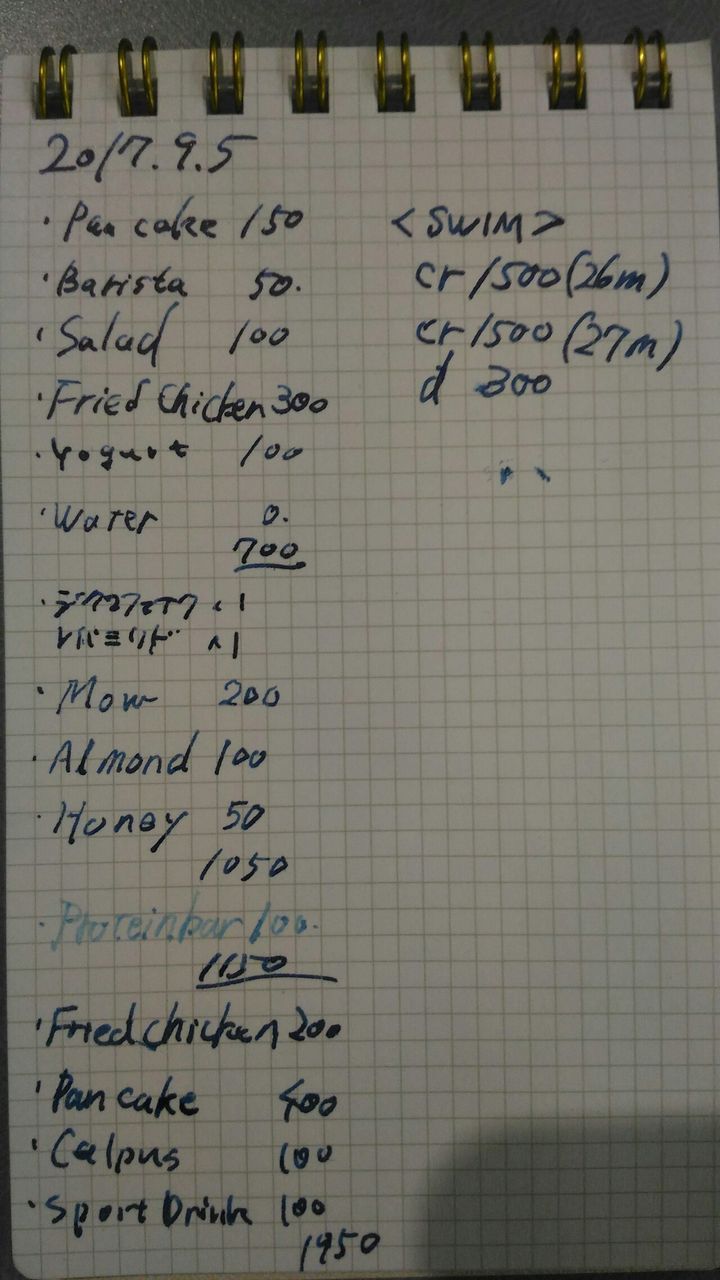 2017.9.5
・Pan cake 150
・Barista 50.
・Salad 100
・Fried Chicken 300
・Yogurt 100
・Water 0.
700
・Mow 200
・Almond 100
・Honey 50
1050
・Proteinbar 100.
1150
・Fried chicken 200
・Pan cake 400
・Calpus 100
・Sport Drink 100
1950
<SWIM>
cr 1500 (26m)
cr 1500 (27m)
d 300